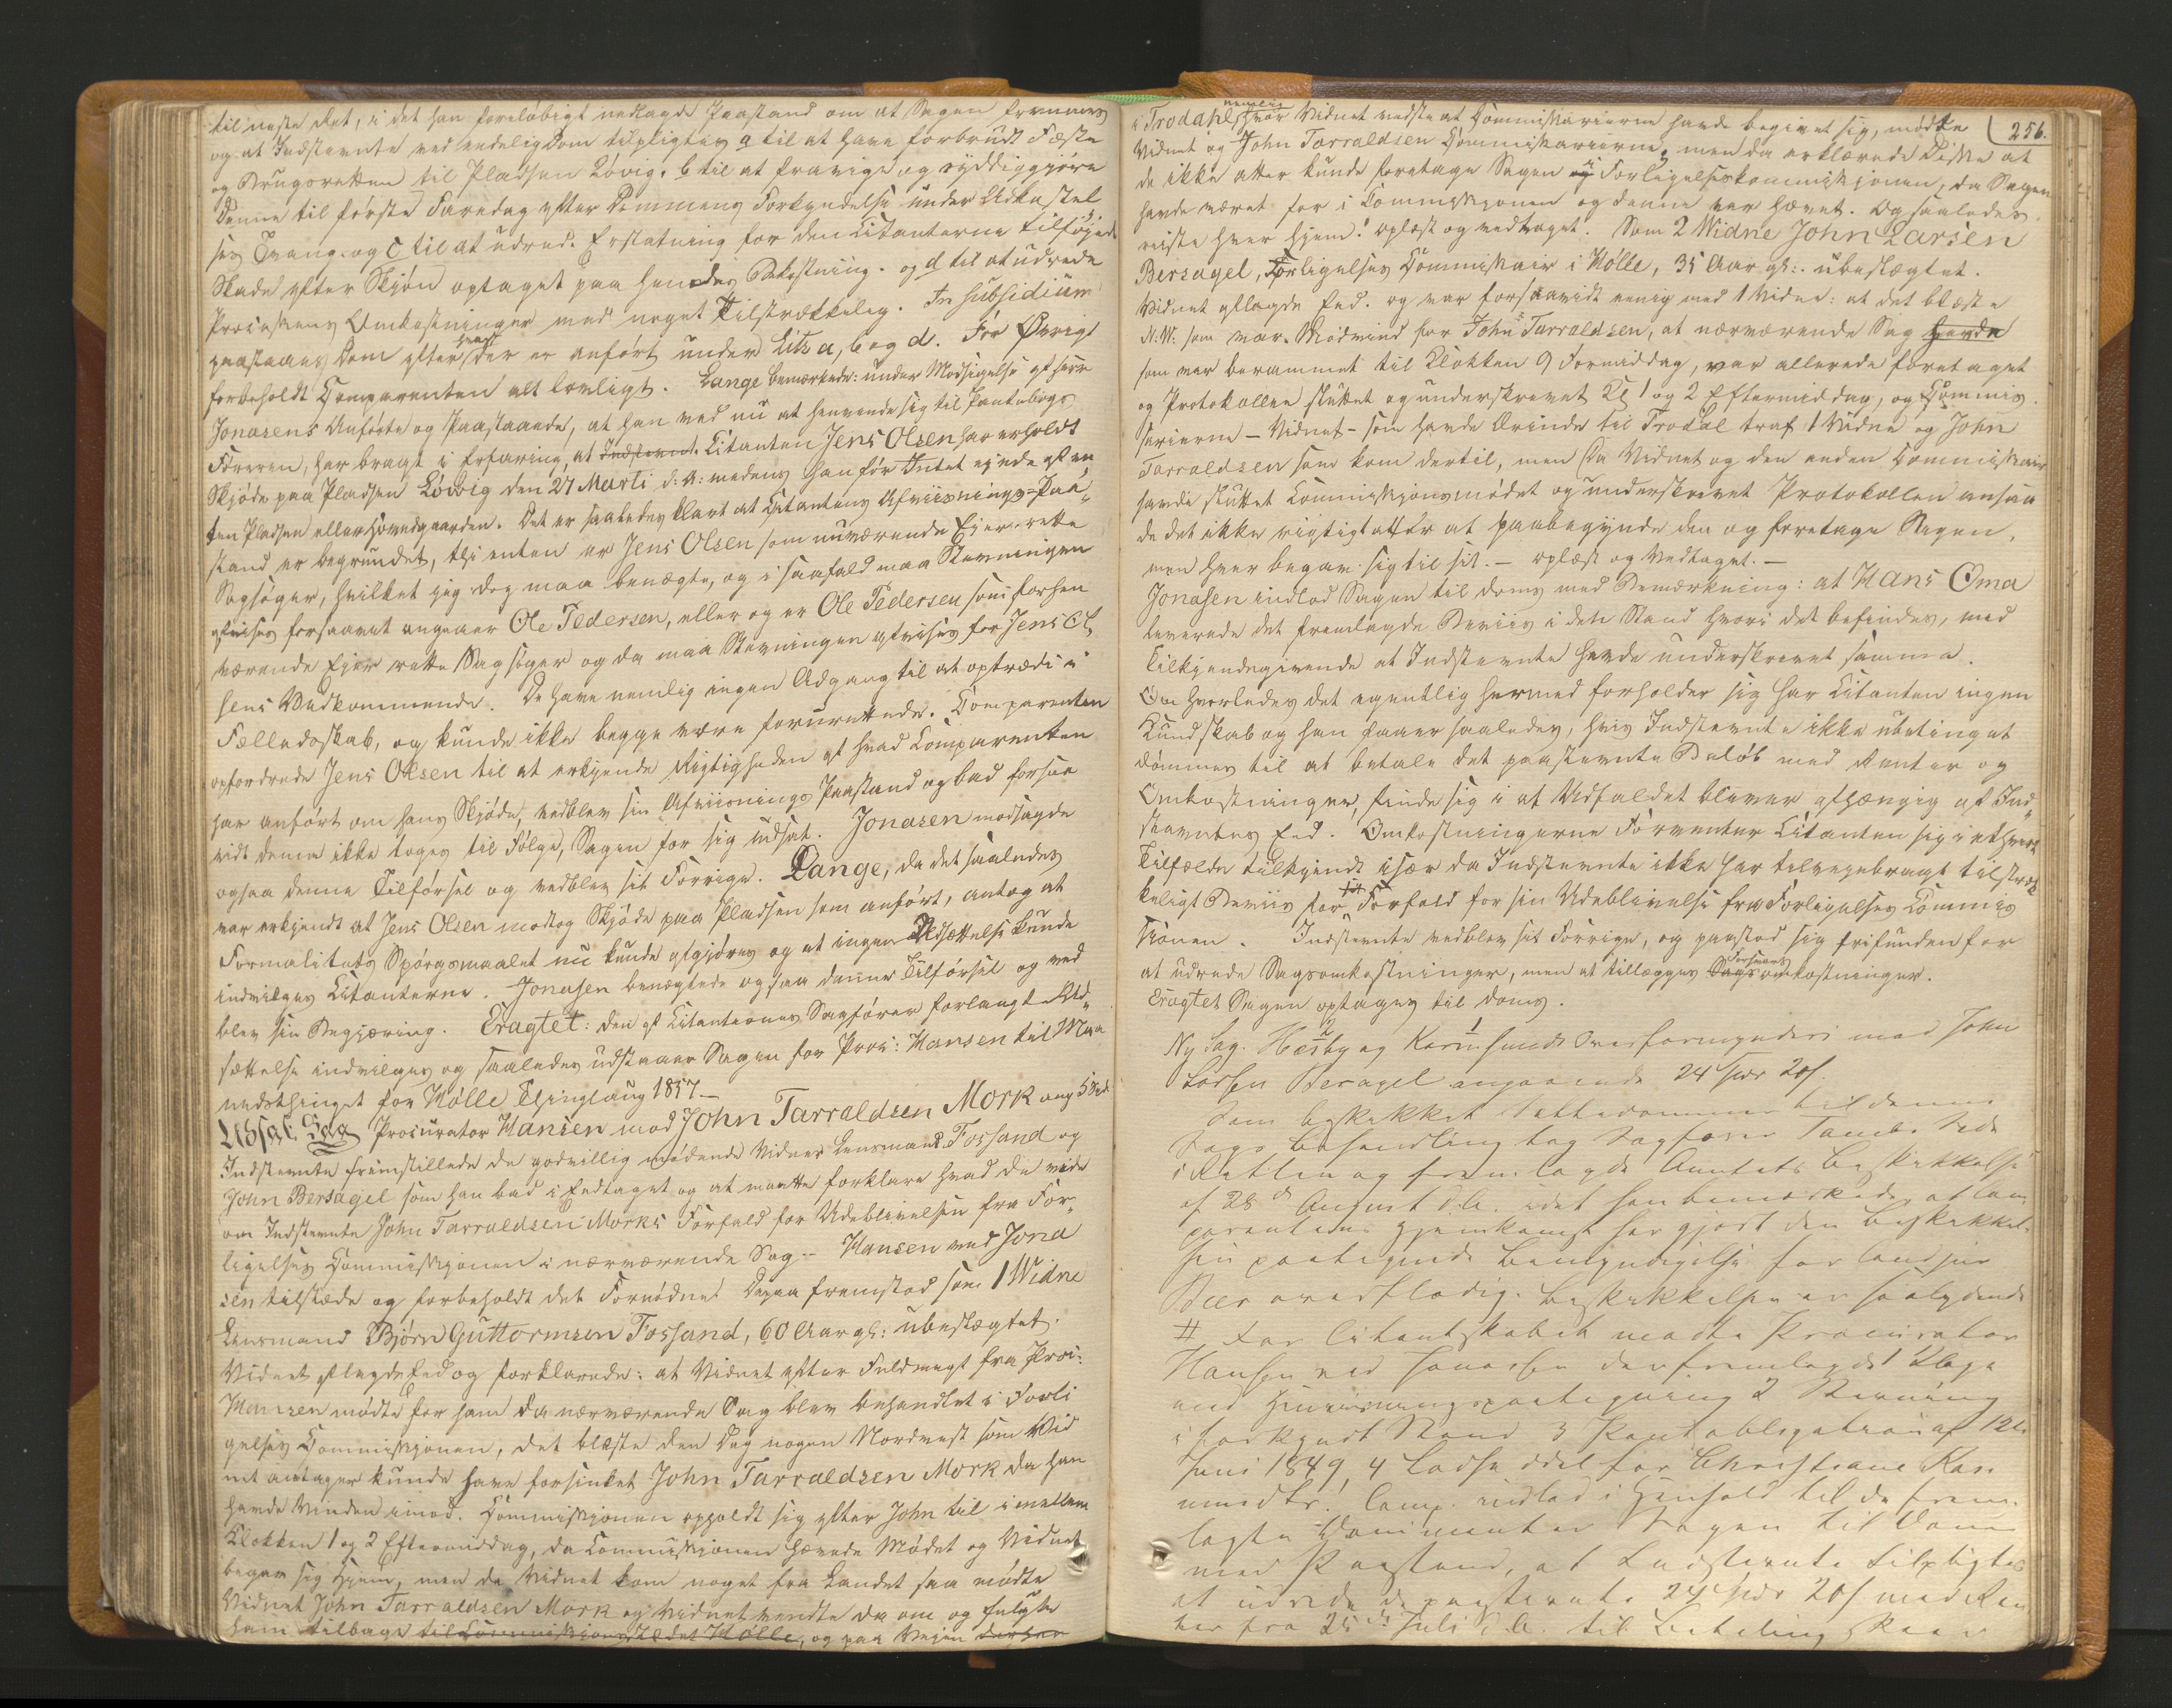 til neste Ret, i det han foreløbigt nedlagde Paastand om at Sagen fremmes
og at Indstevnte ved endelig Dom tilpligtes a til at have forbrudt Fæste
og Brugsretten til Pladsen Løvig. b til at fravige og ryddiggjøre
Denne til første Faredag efter Dommens Forkyndelse under Udkastel
ses Tvang. og c til at udrede Erstatning for den Citanterne tilføjede
Skade efter Skjøn optaget paa hendes Bekostning. og d til at udrede
Processens Omkostninger med noget Tilstrækkelig. In subsidium
paastaaes Dom efter hvad der er anført under Litr a, b og d. For Øvrigt
forbeholdt Comparenten alt lovligt. Lange bemærkede: under Modsigelse af Herr
Jonasens Anførte og Paastaaede, at han ved nu at henvende sig til Pantebogs
Føreren, har bragt i Erfaring, at Indstevnt. Citanten Jens Olsen har erholdt
Skjøde paa Pladsen Løvig den 27 Marti d: A: medens han før Intet eiede af en
ten Pladsen eller Hovedgaarden. Det er saaledes klart at Citantens Afviisnings-Paa„
stand er begrundet, thi enten er Jens Olsen som nuværende Ejer rette
Sagsøger, hvilket jeg dog maa benægte, og i saafald maa Stevningen
afvises forsaavidt angaaer Ole Pedersen, eller og er Ole Pedersen som forhen
værende Ejer rette Sagsøger og da maa Stevningen afvises for Jens Ol
sens Vedkommende. De have nemlig ingen Adgang til at optræde i
Fælledsskab, og kunde ikke begge være forurettede. Comparenten
opfordrede Jens Olsen til at erkjende Rigtigheden af hvad Comparenten
har anført om hans Skjøde, vedblev sin Afviisnings Paastand og bad forsaa
vidt denne ikke toges til Følge, Sagen for sig udsat. Jonasen modsagde
ogsaa denne Tilførsel og vedblev sit Forrige. Lange, da det saaledes
var erkjendt at Jens Olsen modtog Skjøde paa Pladsen som anført, antog at
Formalitets Spørgsmaalet nu kunde afgjøres og at ingen Udsættelse kunde
indvilges Citanterne. Jonasen benægtede ogsaa denne Tilførsel og ved
blev sin Begjæring. Eragtet: den af Citanternes Sagfører forlangte Ud„
sættelse indvilges og saaledes udstaaer Sagen for Proc: Hansen til Mai
maanedsthinget for Hølle Thinglaug 1857.—
Udsat Sag Procurator Hansen mod John Tarraldsen Mørk ang 5 Spd.
Indstevnte fremstillede de godvillig mødende Vidner Lensmand Fossand og
John Bersagel som han bad i Eedtaget og at maatte forklare hvad de vide
om Indstevnte John Tarraldsen Mørks Forfald for Udeblivelsen fra For„
ligelses Commissionen i nærværende Sag. — Hansen ved Jona
sen tilstæde og forbeholdt det Fornødne! Derpaa fremstod som 1 Widne
Lensmand Bjørn Guttormsen Fossand, 60 Aar gl: ubeslægtet.
Vidnet aflagde Eed og forklarede: at Vidnet efter Fuldmagt fra Proc:
Hansen mødte for ham da nærværende Sag blev behandlet i Forli
gelses Commissionen, det blæste den Dag nogen Nordvest som Vid
net antager kunde have forsinket John Tarraldsen Mørk da han
havde Vinden imod. Commissionen opholdt sig efter John til imellem
Klokken 1 og 2 Eftermiddag, da Commissionen hævede Mødet og Vidnet
begav sig hjem, men da Vidnet kom noget fra Landet saa mødte
Vidnet John Tarraldsen Mørk og Vidnet vendte da om og fulgte
ham tilbage til Commissionsstedet Hølle, og paa Vejen derhen
256.
i Trodahl, nemlig hvor Vidnet vidste at Commissærerne havde begivet sig, mødte
Vidnet og John Tarraldsen Commissærerne, men da erklærede Disse at
de ikke atter kunde foretage Sagen i Forligelseskommissionen, da Sagen
havde været for i Commissionen og denne var hævet. Og saaledes
reiste hver hjem! oplæst og vedtaget. Som 2 Widne John Larsen
Bersagel, Forligelses Commissair i Hølle, 35 Aar gl:. ubeslægtet.
Vidnet aflagde Eed. og var forsaavidt eenig med 1 Vidne: at det blæste
N.W. som var Modvind for John Tarraldsen, at nærværende Sag havde
som var berammet til Klokken 9 Formiddag, var allerede foretaget
og Protokollen sluttet og underskrevet Kl 1 og 2 Eftermiddag, og Commis
særerne — Vidnet — som havde Ærinde til Trodal traf 1 Vidne og John
Tarraldsen som kom dertil, men da Vidnet og den anden Commissair
havde sluttet Commissionsmødet og underskrevet Protokollen ansaa
de det ikke rigtigt atter at paabegynde den og foretage Sagen,
men hver begav sig til sit. — oplæst og Vedtaget. —
Jonasen indlod Sagen til Doms med Bemærkning: at Hans Oma
leverede det fremlagde Beviis i den Stand hvori det befindes, med
Tilkjendegivende at Indstevnte havde underskrevet samme.
Om hvorledes det egentlig hermed forholder sig har Citanten ingen
Kundskab og han faaer saaledes, hvis Indstevnte ikke ubetinget
dømmes til at betale det paastevnte Beløb med Renter og
Omkostninger, finde sig i at Udfaldet bliver afhængig af Ind„
stævntes Eed. Omkostningerne Forventer Citanten sig i ethvert
Tilfælde tilkjendt især da Indstevnte ikke har tilveiebragt tilstræk
keligt Beviis for sit Forfald for sin Udeblivelse fra Forligelses Commis
sionen. Indstevnte vedblev sit Forrige, og paastod sig frifunden for
at udrede Sagsomkostninger, men at tillægges Forsvars Sags omkostninger.
Eragtet Sagen optages til Doms.
Ny Sag. Hesby og Karmsunds Overformynderi mod John
Larsen Bersagel angaaende 24 Spd 20 s.
Som beskikket Settedommer til denne
Sags Behandling tog Sagfører Tambs Sede
i Retten og fremlagde Amtets Beskikkelse
af 28 d August d. A. idet han bemærkede, at Com
parentens Hjemkomst har gjort den Beskikkel
sen paategnede Bemyndigelse for
overflødig. Beskikkelsen er saalydende
# For Citantskabet mødte Procurator
Hansen ved Jonassen der fremlagde 1 Klage
med Henvisningspaategning 2 Stevning
i forkyndt Stand 3 Pantobligation af 12te
Juni 1849, 4 for Christiane
Comp. indlod i Henhold til de frem
lagte Documenter Sagen til Doms
med Paastand, at Indstevnte tilpligtes
at udrede de paastevnte 24 Spd 20 s med Ren
ter fra 25de Juli d. A. til Betaling skeer